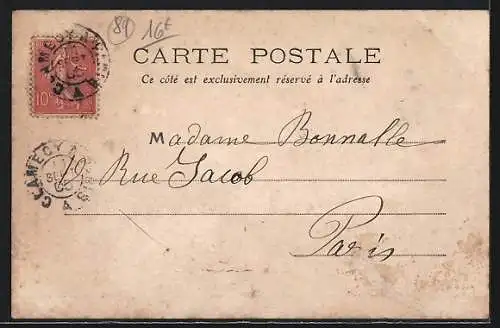 89 16t
CARTE POSTALE
Ce côté est exclusivement réservé à l'adresse
10
CLAMECY A PARIS
M adame Bonnalle
19 Rue Jacob
Paris